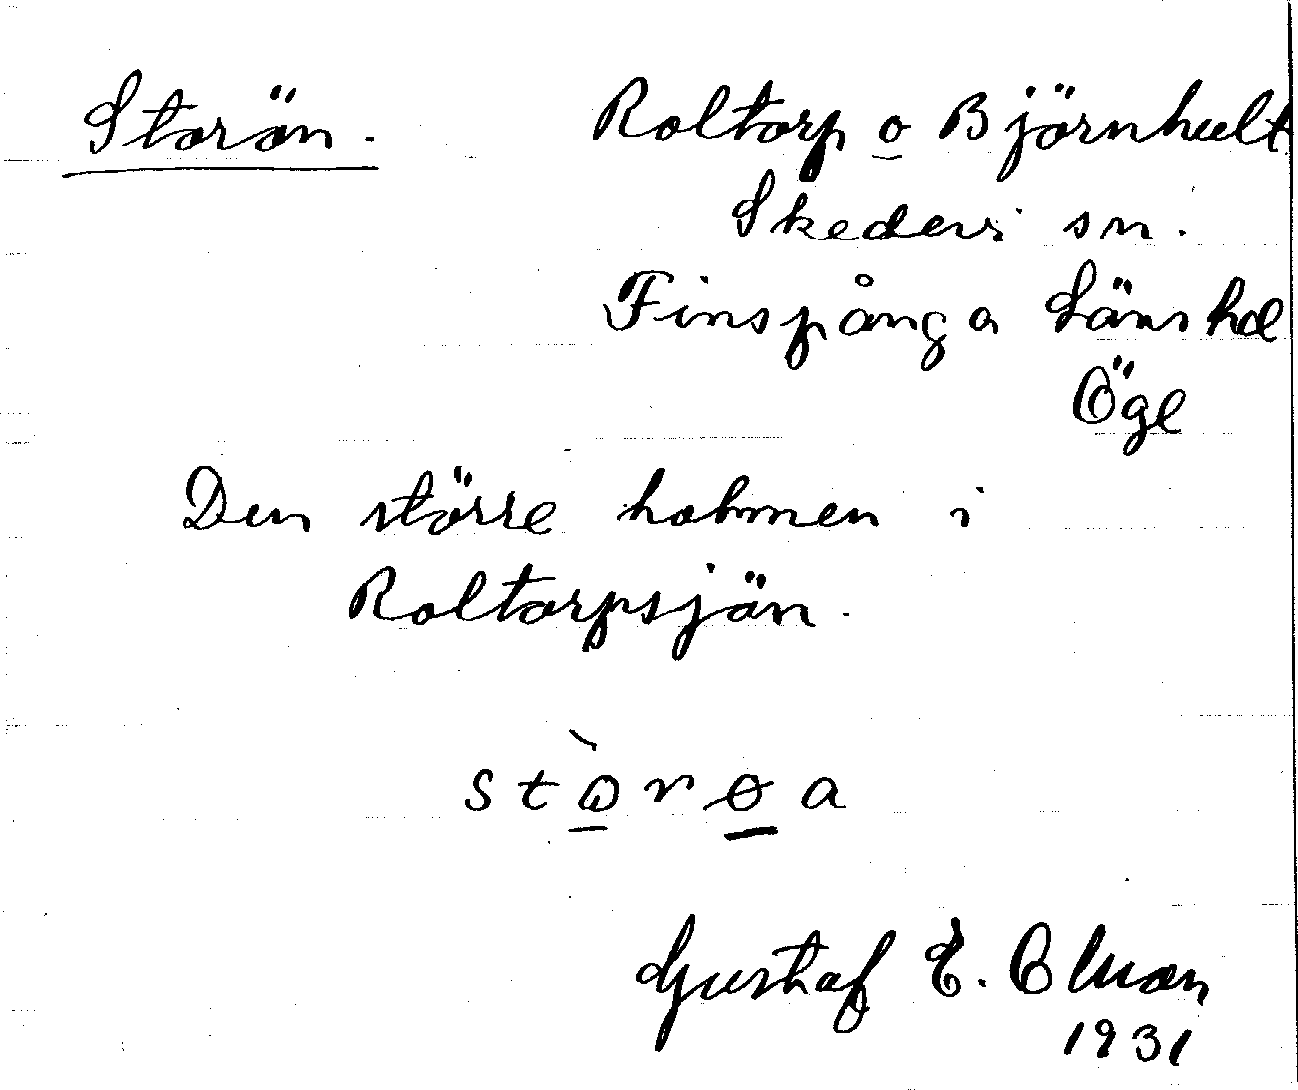 Storön. Roltorp o Björnhult
Skedevi sn.
Finspånga Länshd
Ögl
Den större holmen i
Roltorpsjön.
stòrøa
Gustaf E.
1931